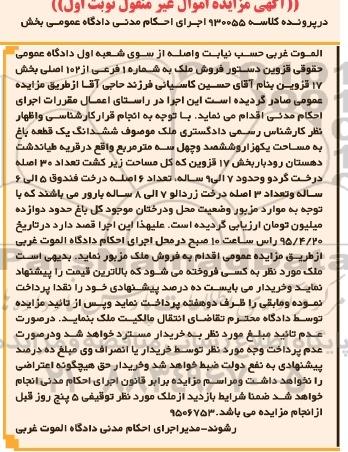 ((آگهی مزایده اموال غیر منقول نوبت اول))
درپرونده کلاسه ۹۳۰۰۵۵ اجرای احکام مدنی دادگاه عمومی بخش
الموت غربی حسب نیابت واصله از سوی شعبه اول دادگاه عمومی
حقوقی قزوین دستور فروش ملک به شماره ۱ فرعی از۱۰۲ اصلی بخش
۱۷ قزوین بنام آقای حسین کاسیانی فرزند حاجی آقا ازطریق مزایده
عمومی صادر گردیده است این اجرا در راستای اعمال مقررات اجرای
احکام مدنی اقدام می نماید. با توجه به انجام قرارکارشناسی واظهار
نظر کارشناس رسمی دادگستری ملک موصوف ششدانگ یک قطعه باغ
به مساحت یکهزاروششصد وچهل سه مترمربع واقع درقریه هیاندشت
دهستان رودباربخش ۱۷ قزوین که کل مساحت زیر کشت تعداد ۳۰ اصله
درخت گردو وحدود ۷ الی۹ ساله، تعداد ۶ اصله درخت فندوق ۵ الی ۶
ساله وتعداد ۳ اصله درخت زردالو ۷ الی ۸ ساله بارور می باشند که با
توجه به موارد مزبور وضعیت محل ودرختان موجود کل باغ حدود دوازده
میلیون تومان ارزیابی گردیده است. علیهذا این اجرا قصد دارد درتاریخ
۹۵/۴/۲۰ راس ساعت ۱۰ صبح درمحل اجرای احکام دادگاه الموت غربی
ازطریق مزایده عمومی اقدام به فروش ملک مزبور نماید. بدیهی است
ملک مورد نظر به کسی فروخته می شود که بالاترین قیمت را پیشنهاد
نماید وخریدار می بایست ده درصد پیشنهادی خود را نقدا پرداخت
نموده ومابقی را ظرف دوهفته پرداخت نماید وپس از تائید مزایده
توسط دادگاه محترم تقاضای انتقال مالکیت ملک بنماید. درصورت
عدم تائید مبلغ مورد نظر به خریدار مسترد خواهد شد ودرصورت
عدم پرداخت وجه مورد نظر توسط خریدار یا انصراف وی مبلغ ده درصد
پیشنهادی به نفع دولت ضبط خواهد شد وخریدار حق هیچگونه اعتراضی
را نخواهد داشت ومراسم مزایده برابر قانون اجرای احکام مدنی انجام
خواهد شد ضمنا شرایط بازدید ازملک مورد نظر توقیفی ۵ پنج روز قبل
ازانجام مزایده می باشد.۹۵۰۶۷۵۳
رشوند-مدیراجرای احکام مدنی دادگاه الموت غربی